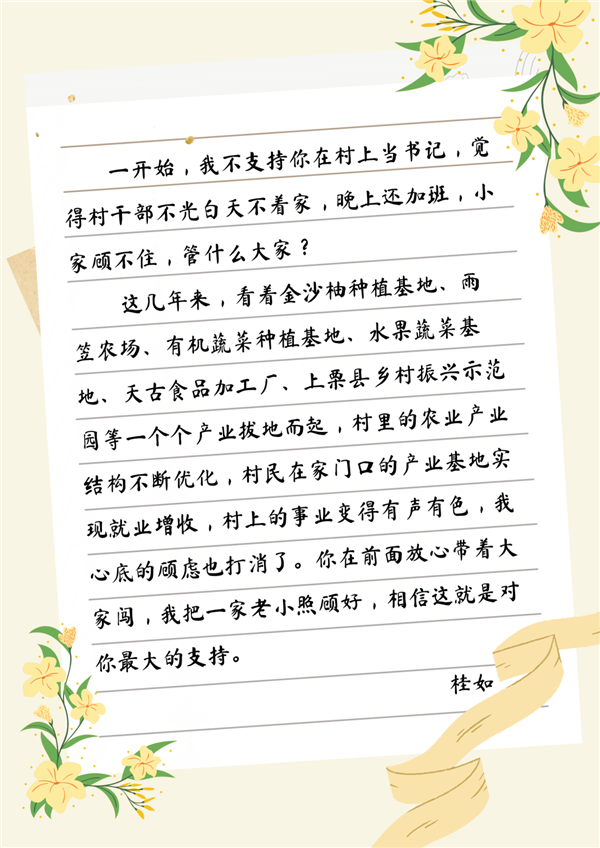 一开始，我不支持你在村上当书记，觉
得村干部不光白天不着家，晚上还加班，小
家顾不住，管什么大家？
这几年来，看着金沙柚种植基地、雨
笠农场、有机蔬菜种植基地、水果蔬菜基
地、天古食品加工厂、上栗县乡村振兴示范
园等一个个产业拔地而起，村里的农业产业
结构不断优化，村民在家门口的产业基地实
现就业增收，村上的事业变得有声有色，我
心底的顾虑也打消了。你在前面放心带着大
家闯，我把一家老小照顾好，相信这就是对
你最大的支持。
桂如